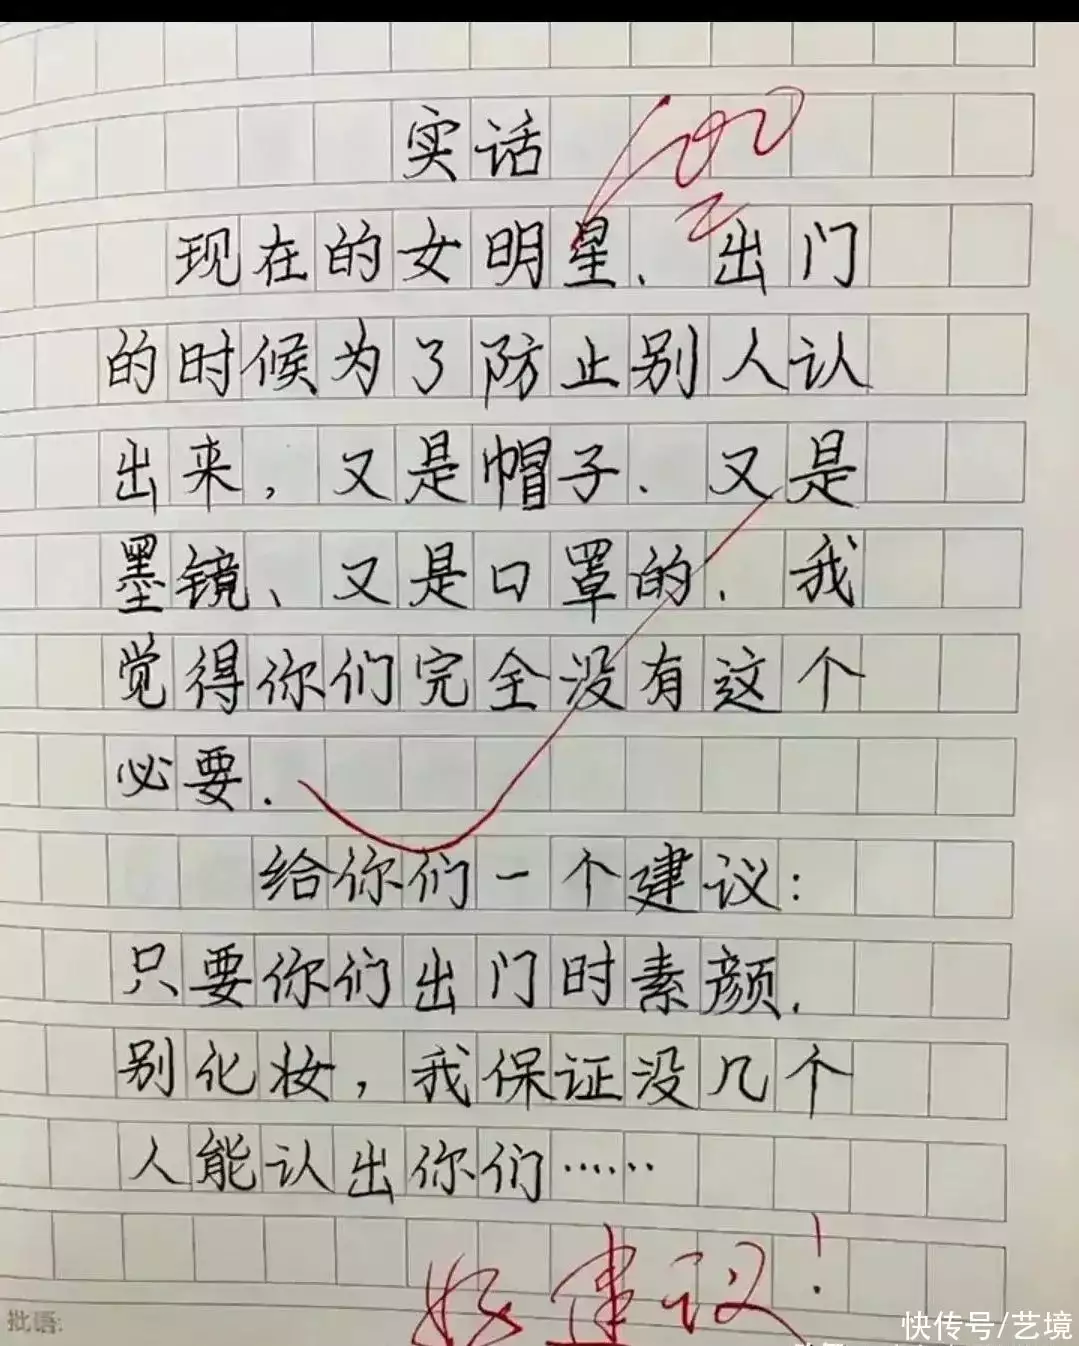 实话
100
现在的女明星.出门
的时候为了防止别人认
出来,又是帽子.又是
墨镜、又是口罩的.我
觉得你们完全没有这个
必要.
给你们一个建议:
只要你们出门时素颜.
别化妆,我保证没几个
人能认出你们……
好建议!
批语:
快传号/艺境